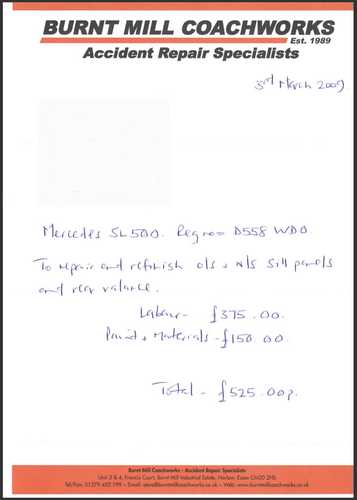 BURNT MILL COACHWORKS
Est. 1989
Accident Repair Specialists
3rd March 2009
Mercedes SL500. Reg no= D558 WDO.
To repair and refinish o/s + n/s sill panels
and rear valance.
Labour - £375.00.
Paint + Materials - £150.00.
Total - £525.00p.
Burnt Mill Coachworks - Accident Repair Specialists
Unit 3 & 4, Francis Court, Burnt Mill Industrial Estate, Harlow, Essex CM20 2HS
Tel/Fax: 01279 652 199 – Email: steve@burntmillcoachworks.co.uk – Web: www.burntmillcoachworks.co.uk